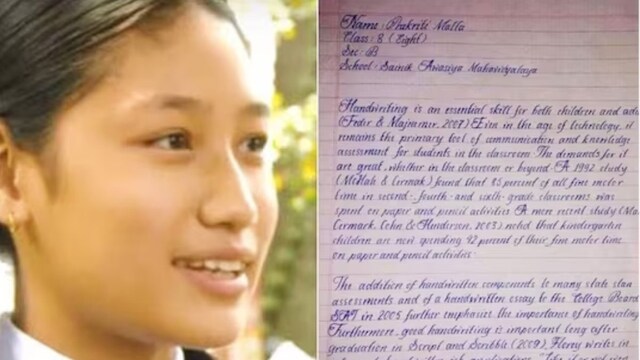 Name : Prakriti Malla
Class : 8 (Eight)
Sec : B
School : Sainik Awasiya Mahavidyalaya
Handwriting is an essential skill for both children and adu
(Feder & Majnemer, 2007) Even in the age of technology, it
remains the primary tool of communication and knowledge
assessment for students in the classroom. The demands for it
are great, whether in the classroom or beyond. A 1992 study
(McHale & Cermak) found that 85 percent of all fine motor
time in second- fourth- and sixth-grade classrooms was
spent on paper and pencil activities. A more recent study (Ma
Cermark, Cohn & Henderson, 2003) noted that kindergarten
children are now spending 42 percent of their fine motor time
on paper and pencil activities.
The addition of handwritten components to many state stan
assessments and of a handwritten essay to the College Board
SAT in 2005 further emphasize the importance of handwriting
Furthermore, good handwriting is important long after
graduation. In Script and Scribble (2009), Florey writes in